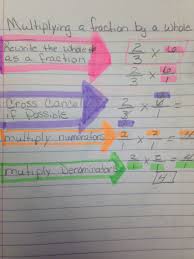 Multiplying a fraction by a whole
Rewrite the whole # as a fraction
2/3 × 6/1
Cross Cancel if Possible
2/3 × 6/1 =
multiply numerators
2/1 × 2/1 = 4
multiply Denominators
2/1 × 2/1 = 4/1
4